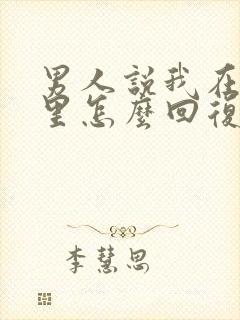 男人說我在
里怎麼回復
李慧思